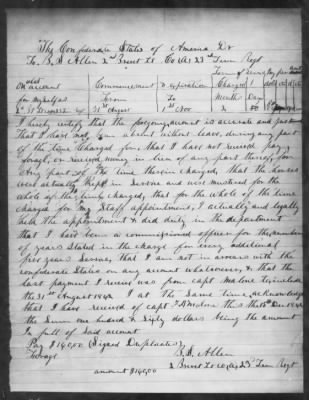 The Confederate States of America Dr
To. B. S. Allen 2nd Brevet Lt. Co A 23d Tenn Regt
on account Commencement & expiration Charged
for myself as From To Month Days
31st August 1st Nov 2
I hereby certify that the foregoing account is accurate and just
That I have not been absent without leave, during any part
of the time Charged for, that I have not received pay
forage, or received money in lieu of any part thereof, for
any part of the time therein charged, that the horses
were actually Kept in Service and was mustered for the
whole of the time charged, that for the whole of the time
charged for my Staff appointment, I actually and legally
held the appointment & did duty in the department
that I have been a commissioned officer for the number
of years Stated in the charge for every additional
five years Service, that I am not in arrears with the
confederate States on any account whatsoever, & that the
last payment I receive was from capt Malone to include
the 31st August 1862 I at the same time acknowledge
that I have received of capt Malone this the Dec 1862
the Sum one hundred & Sixty dollars being the amount
In full of Said account
Pay $160,00 (Signed Duplicates)
Forage B. S. Allen
amount $160,00 2 Brevet Lt Co A 23d Tenn Regt